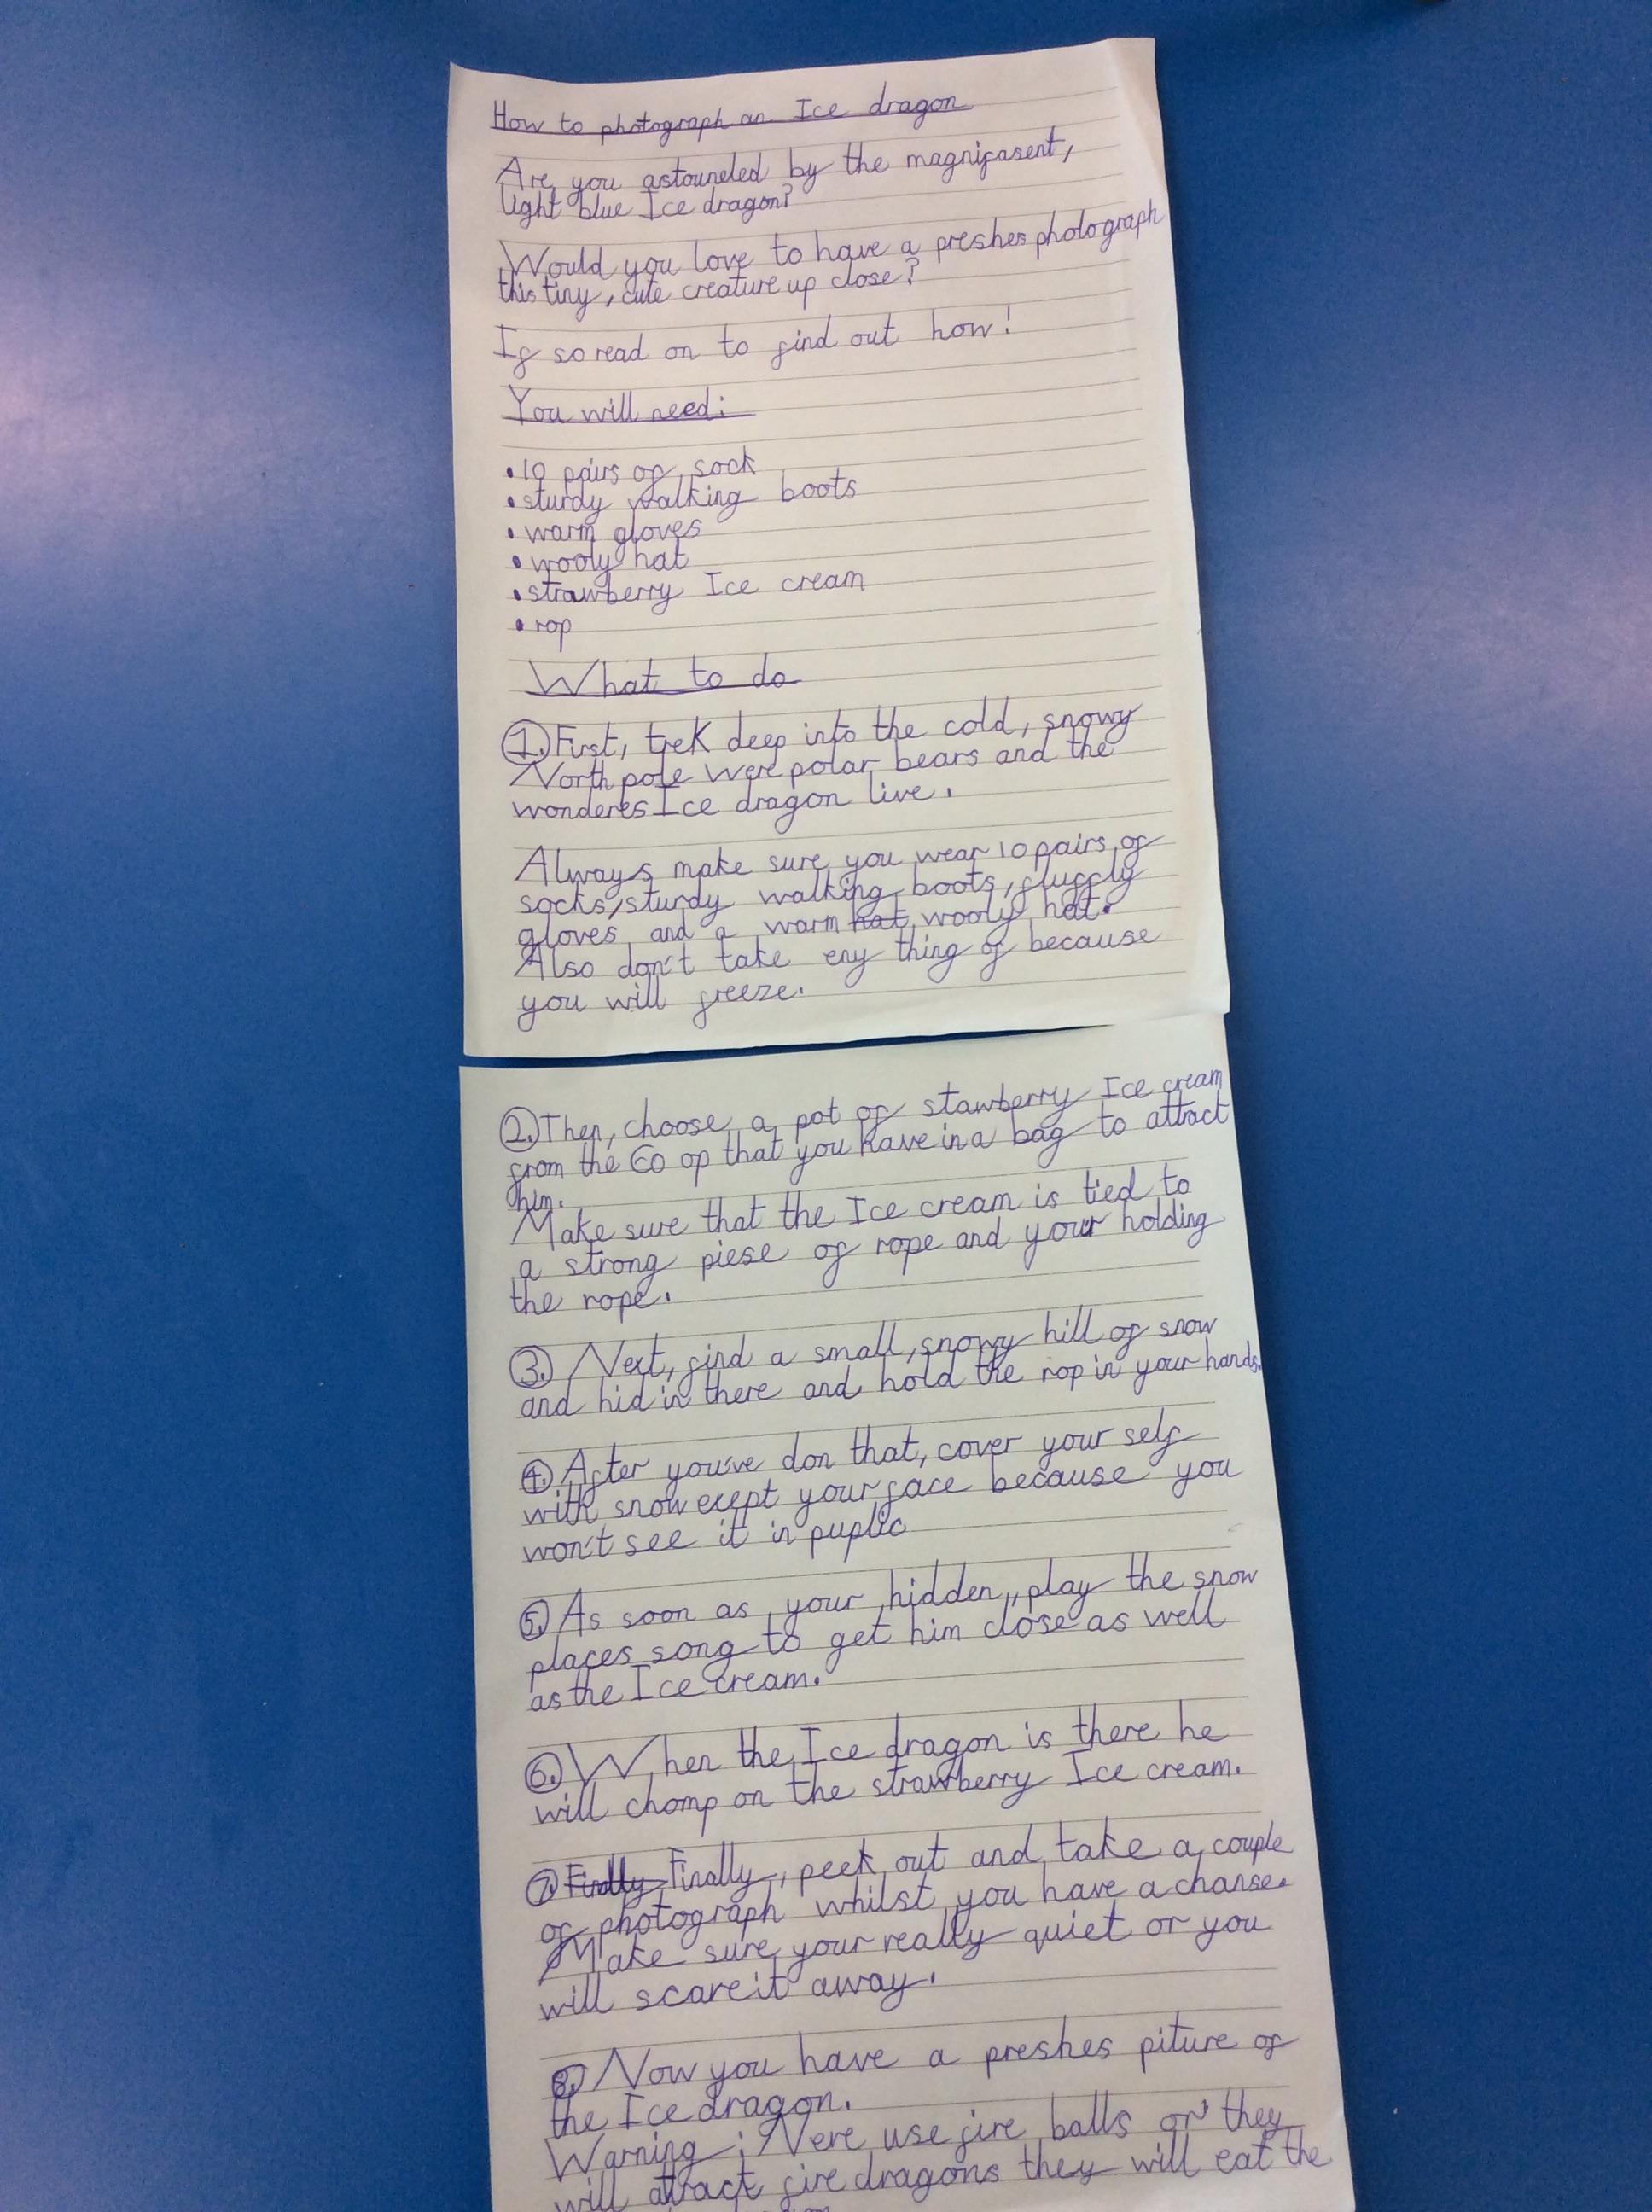 How to photograph an Ice dragon
Are you astouneled by the magnifasent,
light blue Ice dragon?
Would you love to have a preshes photograph
this tiny, cute creature up close?
If so read on to find out how!
You will need:
• 10 pairs of sock
• sturdy walking boots
• warm gloves
• wooly hat
• strawberry Ice cream
• rop
What to do
1. First, trek deep into the cold, snowy
North pole were polar bears and the
wonderes Ice dragon live.
Always make sure you wear 10 pairs of
socks, sturdy walking boots, fluffly
gloves and a warm hat wooly hat.
Also don't take eny thing of because
you will freeze.
2. Then, choose a pot of stawberry Ice cream
from the Co op that you have in a bag to attract
him.
Make sure that the Ice cream is tied to
a strong piese of rope and your holding
the rope.
3. Next, find a small, snowy hill of snow
and hid in there and hold the rop in your hands.
4. After you've don that, cover your self
with snow exept your face because you
won't see it in puplic
5. As soon as your hidden, play the snow
places song to get him close as well
as the Ice cream.
6. When the Ice dragon is there he
will chomp on the strawberry Ice cream.
7. Finally Finally, peek out and take a couple
of photograph whilst you have a chanse.
Make sure your really quiet or you
will scare it away.
8. Now you have a preshes piture of
the Ice dragon.
Warning: Nere use fire balls or they
will attract fire dragons they will eat the